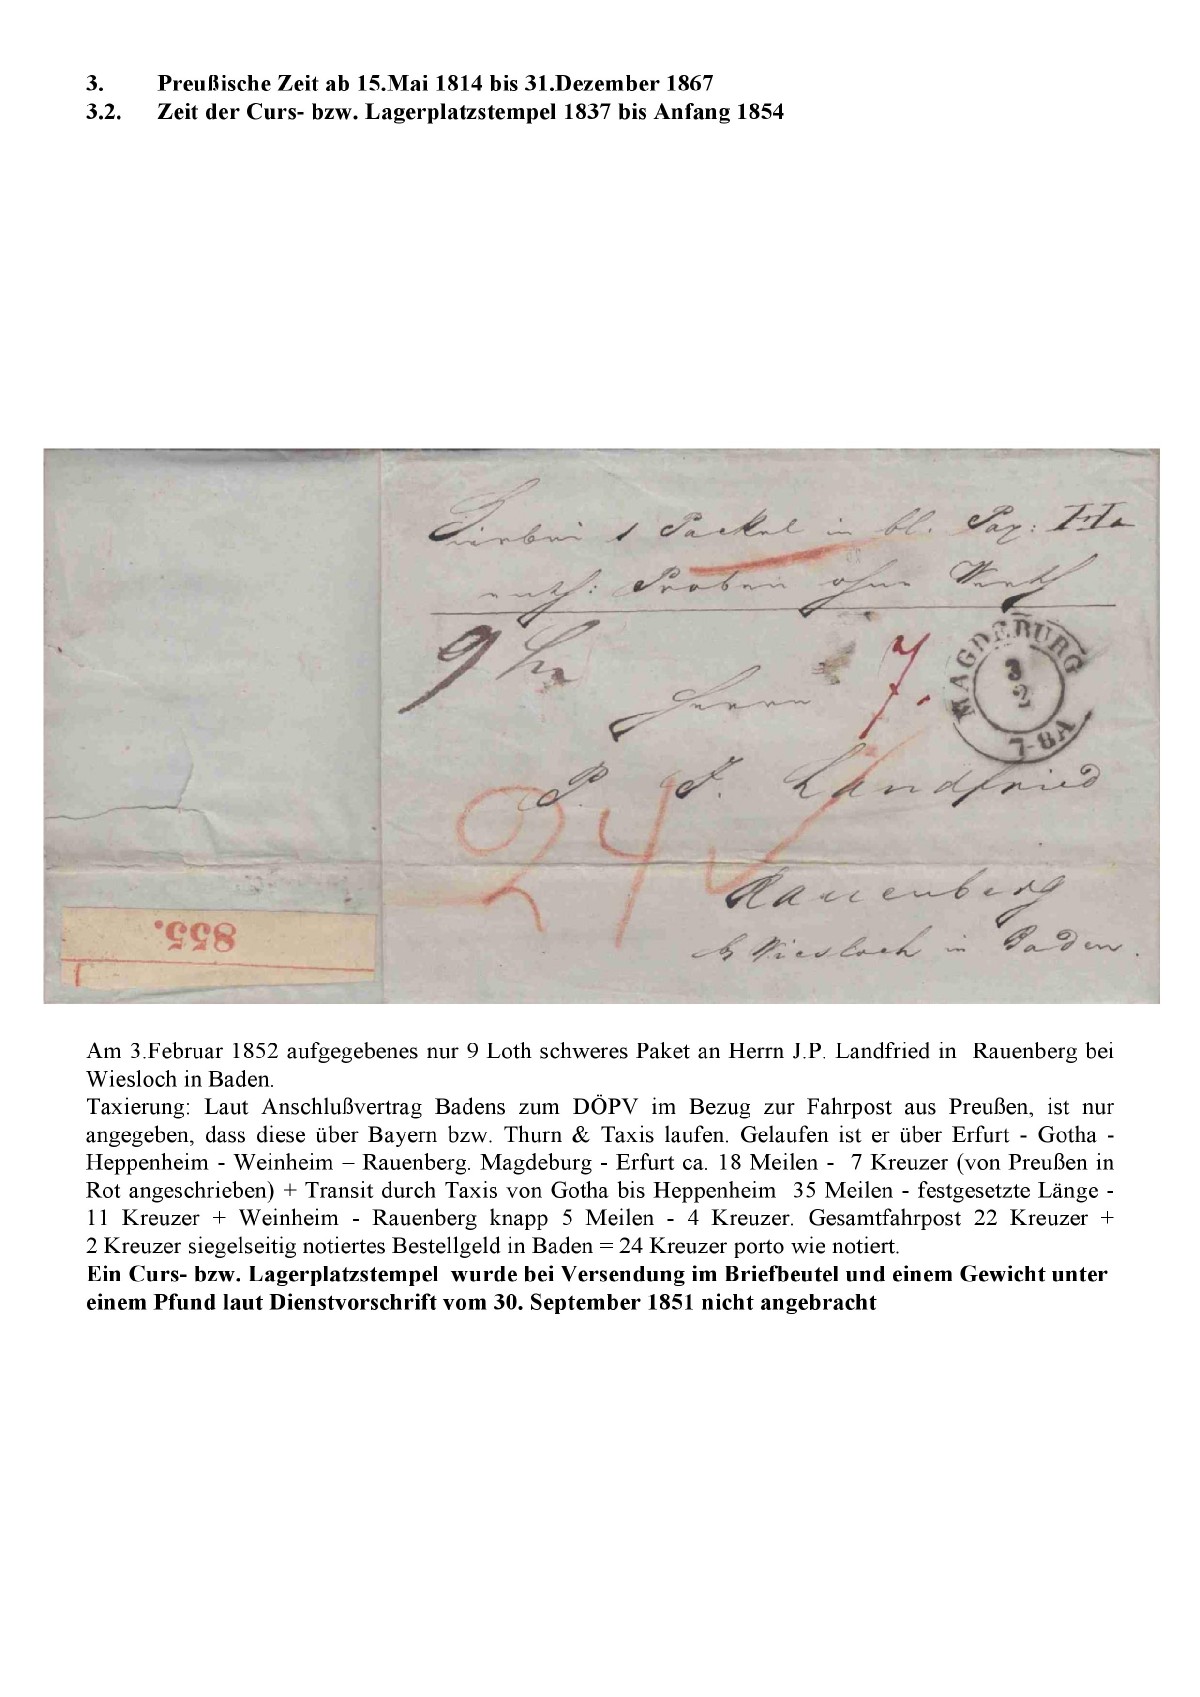 3. Preußische Zeit ab 15.Mai 1814 bis 31.Dezember 1867
3.2. Zeit der Curs- bzw. Lagerplatzstempel 1837 bis Anfang 1854
Hierbei 1 Packet in bl. Pap:
enth: Proben ohne Werth
9 Lth
7.
MAGDEBURG
3
2
7-8A
Herrn
P. J. Landfried
24
Rauenberg
b/ Wiesloch in Baden.
855.
Am 3.Februar 1852 aufgegebenes nur 9 Loth schweres Paket an Herrn J.P. Landfried in Rauenberg bei
Wiesloch in Baden.
Taxierung: Laut Anschlußvertrag Badens zum DÖPV im Bezug zur Fahrpost aus Preußen, ist nur
angegeben, dass diese über Bayern bzw. Thurn & Taxis laufen. Gelaufen ist er über Erfurt - Gotha -
Heppenheim - Weinheim – Rauenberg. Magdeburg - Erfurt ca. 18 Meilen - 7 Kreuzer (von Preußen in
Rot angeschrieben) + Transit durch Taxis von Gotha bis Heppenheim 35 Meilen - festgesetzte Länge -
11 Kreuzer + Weinheim - Rauenberg knapp 5 Meilen - 4 Kreuzer. Gesamtfahrpost 22 Kreuzer +
2 Kreuzer siegelseitig notiertes Bestellgeld in Baden = 24 Kreuzer porto wie notiert.
Ein Curs- bzw. Lagerplatzstempel wurde bei Versendung im Briefbeutel und einem Gewicht unter
einem Pfund laut Dienstvorschrift vom 30. September 1851 nicht angebracht